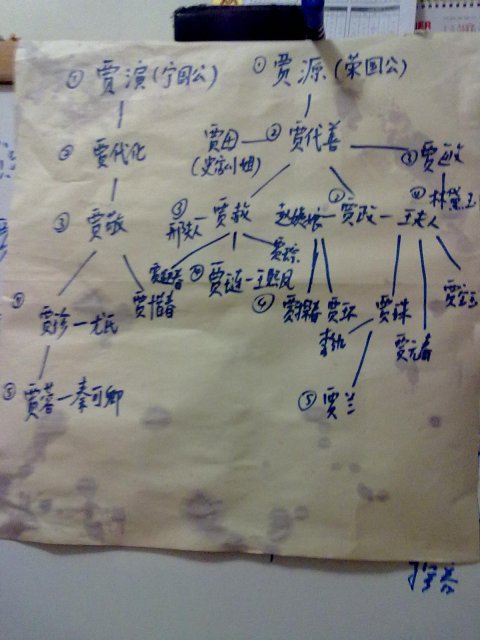 ① 贾演(宁国公)
① 贾源(荣国公)
② 贾代化
贾母
(史家小姐)
② 贾代善
③ 贾敏
④ 林黛玉
③ 贾敬
③
邢夫人一贾赦
赵姨娘一贾政一王夫人
贾迎春
④ 贾琏一王熙凤
贾琮
贾惜春
贾珍一尤氏
④ 贾探春
贾环
贾珠
李纨
贾元春
贾宝玉
⑤ 贾蓉一秦可卿
⑤ 贾兰